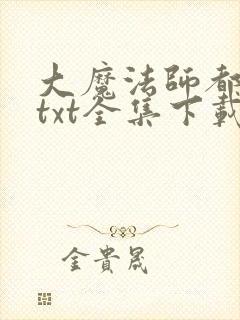 大魔法師都
txt全集下載
金貴晟